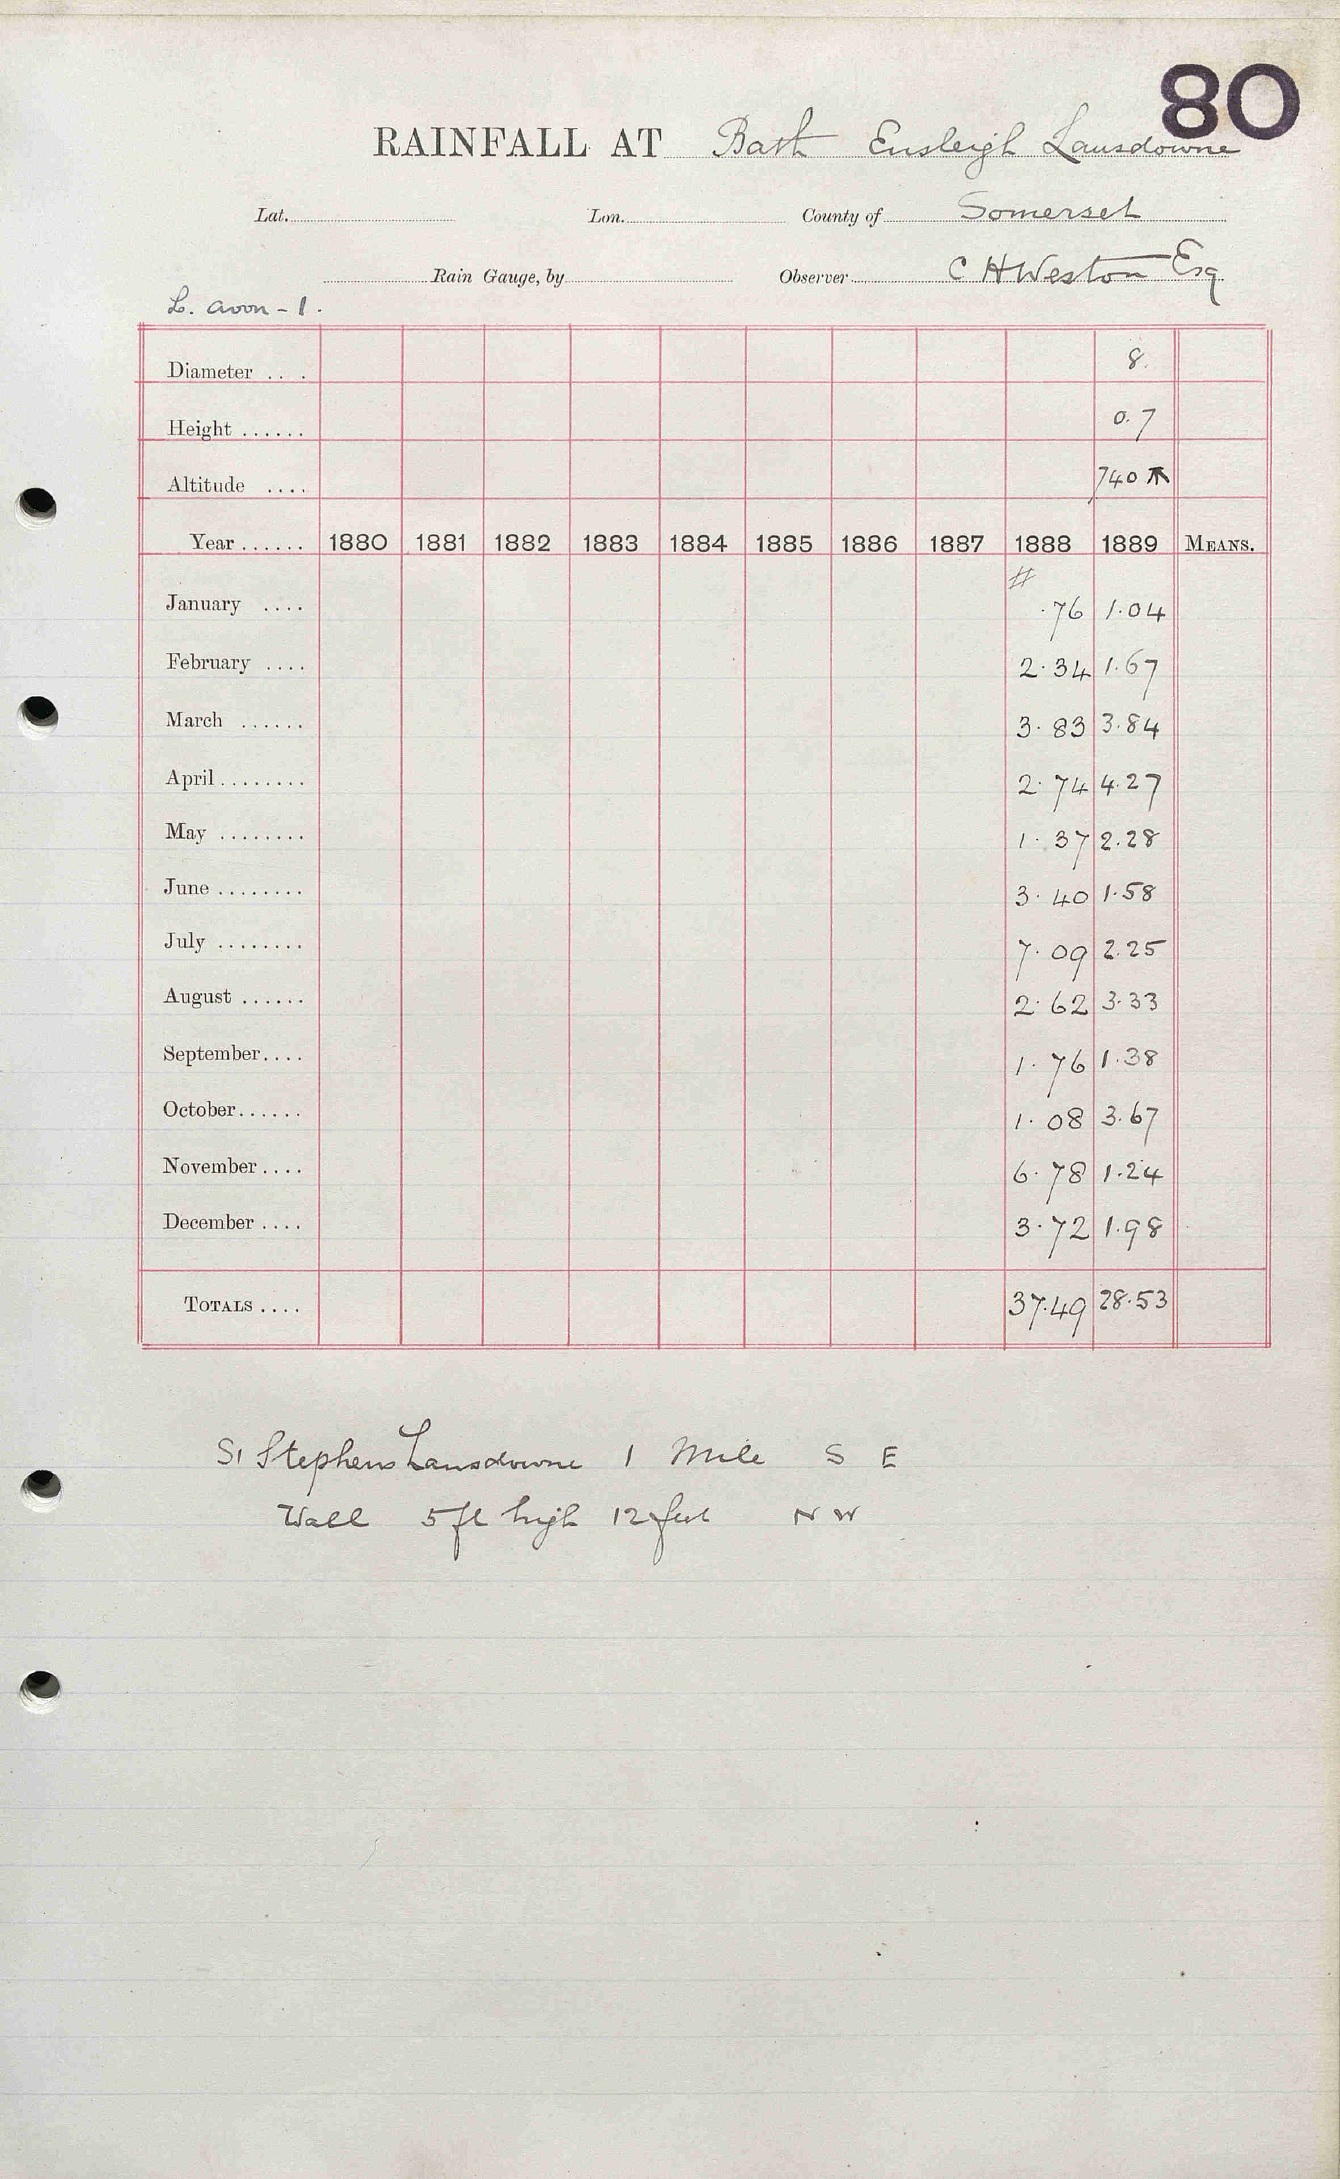 80
RAINFALL AT Bath Ensleigh Lansdowne
Lat. Lon. County of Somerset
Rain Gauge, by Observer C H Weston Esq
L. Avon - 1.
Diameter .. . 8.
Height ...... 0.7
Altitude .... 740
Year ...... 1880 1881 1882 1883 1884 1885 1886 1887 1888 1889 MEANS.
#
January .... .76 1.04
February .... 2.34 1.67
March ...... 3.83 3.84
April ........ 2.74 4.27
May ........ 1.37 2.28
June ........ 3.40 1.58
July ........ 7.09 2.25
August ...... 2.62 3.33
September.... 1.76 1.38
October...... 1.08 3.67
November.... 6.78 1.24
December .... 3.72 1.98
TOTALS .... 37.49 28.53
St Stephens Lansdowne 1 Mile S E
Wall 5 ft high 12 feet N W